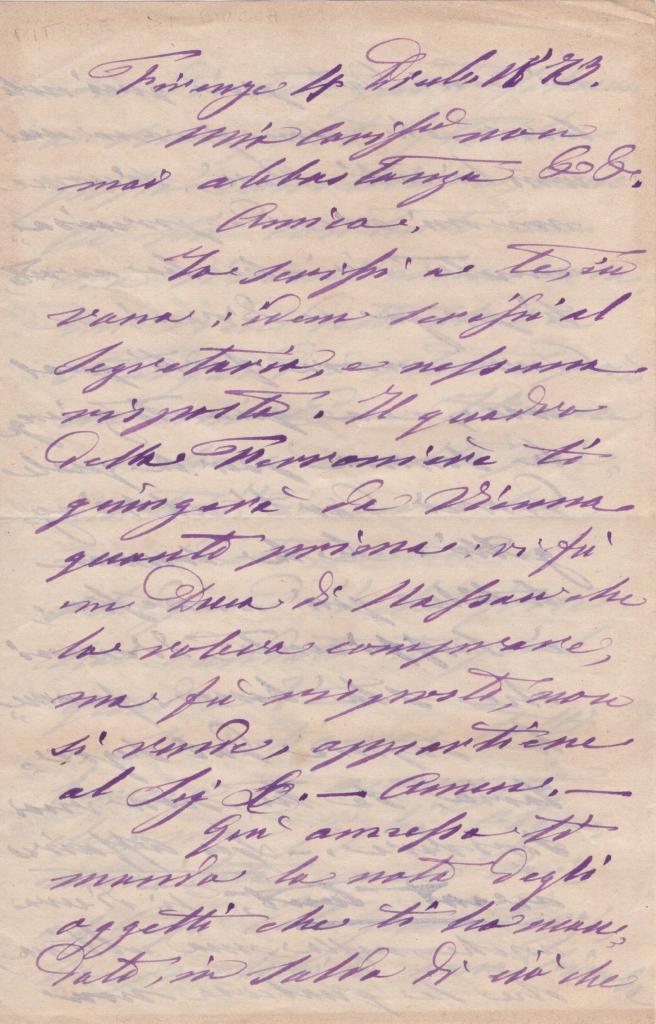 PITTORE DI LUCCA
Firenze 4 Dicbe 1873.
Mio carissmo non
mai abbastanza &&.
Amico.
Io scrissi a te, in
vano; idem scrissi al
Segretario, e nessuna
risposta. Il quadro
della Ferroniere ti
giungerà da Vienna
quanto prima: vi fù
un Duca di Nassau che
lo voleva comprare,
ma fù risposto, non
si vende, appartiene
al Sig L. — Amen. —
Quì annesso ti
mando la nota degli
oggetti che ti ho man=
dato, in saldo di ciò che